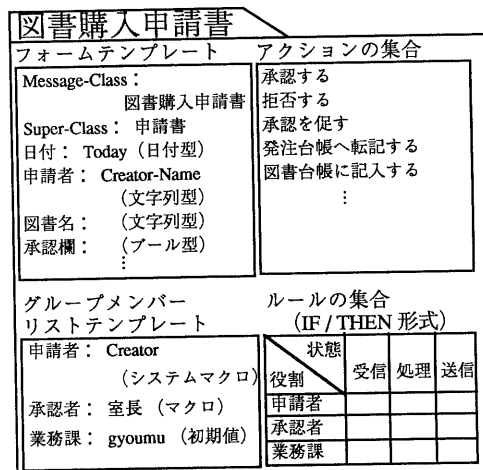 図書購入申請書
フォームテンプレート
Message-Class：
図書購入申請書
Super-Class： 申請書
日付： Today（日付型）
申請者： Creator-Name
（文字列型）
図書名： （文字列型）
承認欄： （ブール型）
⋮
アクションの集合
承認する
拒否する
承認を促す
発注台帳へ転記する
図書台帳に記入する
⋮
グループメンバー
リストテンプレート
申請者： Creator
（システムマクロ）
承認者： 室長（マクロ）
業務課： gyoumu（初期値）
ルールの集合
（IF / THEN 形式）
状態
役割 受信 処理 送信
申請者
承認者
業務課